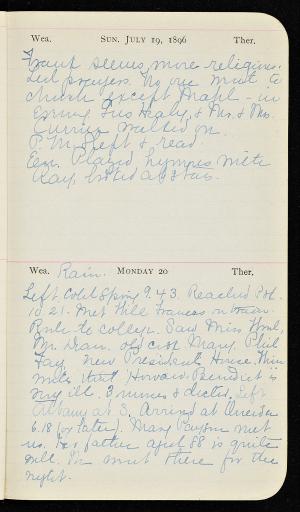 Wea. SUN. JULY 19, 1896 Ther.
Frank seems more religious.
Led prayers. No one went to
church except Mabel - in
Evening Gus Healy, & Mr. & Mrs.
Currier walked on.
P.M. Slept & read.
Eve. Played hymns with
Ray,
Wea. Rain. MONDAY 20 Ther.
Left Cold Spring 9.43. Reached Pok.
10.21. Met Will Frances on train.
Rode to college. Saw Miss
Mr. Dean. old cost Mary, Phil
Fay, New President's House.
Howard Benedict is
very ill. 3 nurses & doctor. Left
Albany at 3. Arrived at Oneida
6.18 (or later). Mary Payson met
us. Her father aged 88 is quite
well. We went there for the
night.